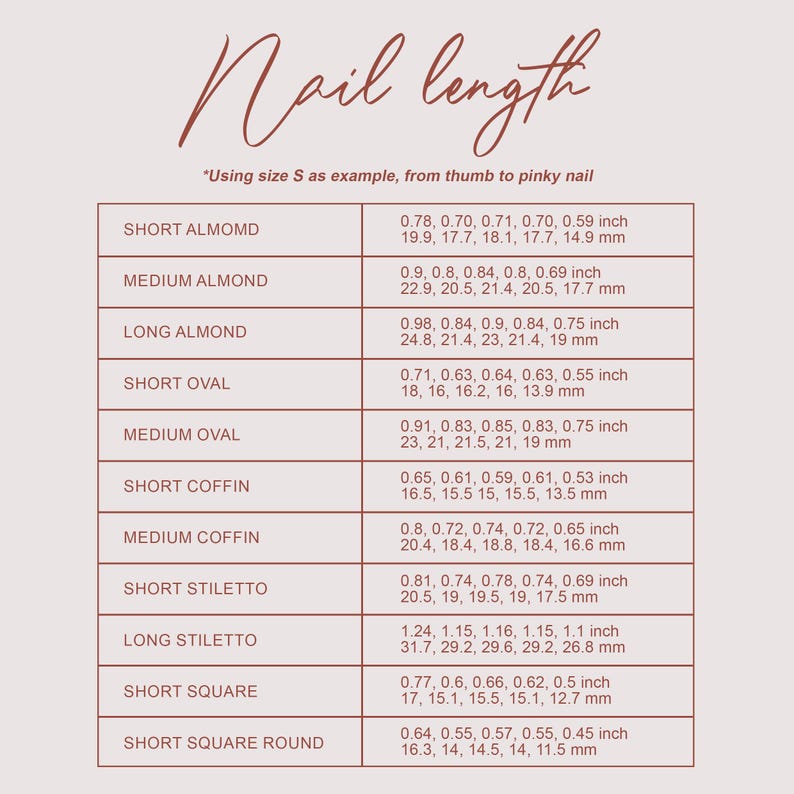 Nail length
*Using size S as example, from thumb to pinky nail
SHORT ALMOMD
0.78, 0.70, 0.71, 0.70, 0.59 inch
19.9, 17.7, 18.1, 17.7, 14.9 mm
MEDIUM ALMOND
0.9, 0.8, 0.84, 0.8, 0.69 inch
22.9, 20.5, 21.4, 20.5, 17.7 mm
LONG ALMOND
0.98, 0.84, 0.9, 0.84, 0.75 inch
24.8, 21.4, 23, 21.4, 19 mm
SHORT OVAL
0.71, 0.63, 0.64, 0.63, 0.55 inch
18, 16, 16.2, 16, 13.9 mm
MEDIUM OVAL
0.91, 0.83, 0.85, 0.83, 0.75 inch
23, 21, 21.5, 21, 19 mm
SHORT COFFIN
0.65, 0.61, 0.59, 0.61, 0.53 inch
16.5, 15.5 15, 15.5, 13.5 mm
MEDIUM COFFIN
0.8, 0.72, 0.74, 0.72, 0.65 inch
20.4, 18.4, 18.8, 18.4, 16.6 mm
SHORT STILETTO
0.81, 0.74, 0.78, 0.74, 0.69 inch
20.5, 19, 19.5, 19, 17.5 mm
LONG STILETTO
1.24, 1.15, 1.16, 1.15, 1.1 inch
31.7, 29.2, 29.6, 29.2, 26.8 mm
SHORT SQUARE
0.77, 0.6, 0.66, 0.62, 0.5 inch
17, 15.1, 15.5, 15.1, 12.7 mm
SHORT SQUARE ROUND
0.64, 0.55, 0.57, 0.55, 0.45 inch
16.3, 14, 14.5, 14, 11.5 mm